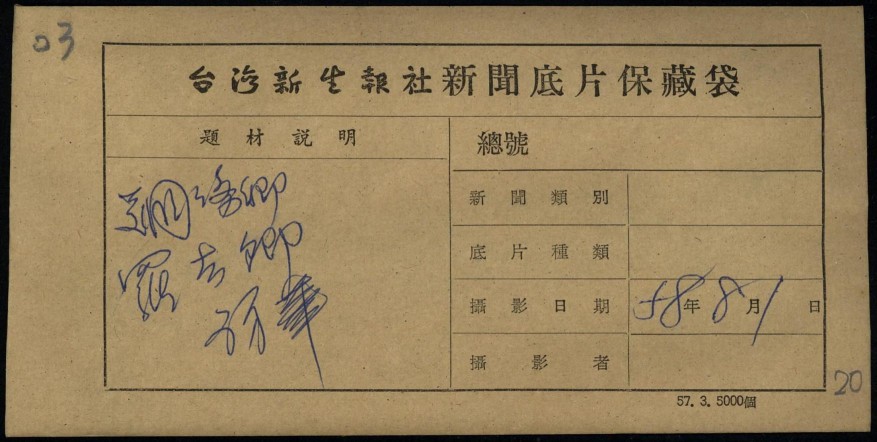 03
台灣新生報社新聞底片保藏袋
題材說明
總號
新聞類別
底片種類
攝影日期 58年8月1日
攝影者
卿
羅吉卿
訪華
20
57. 3. 5000個